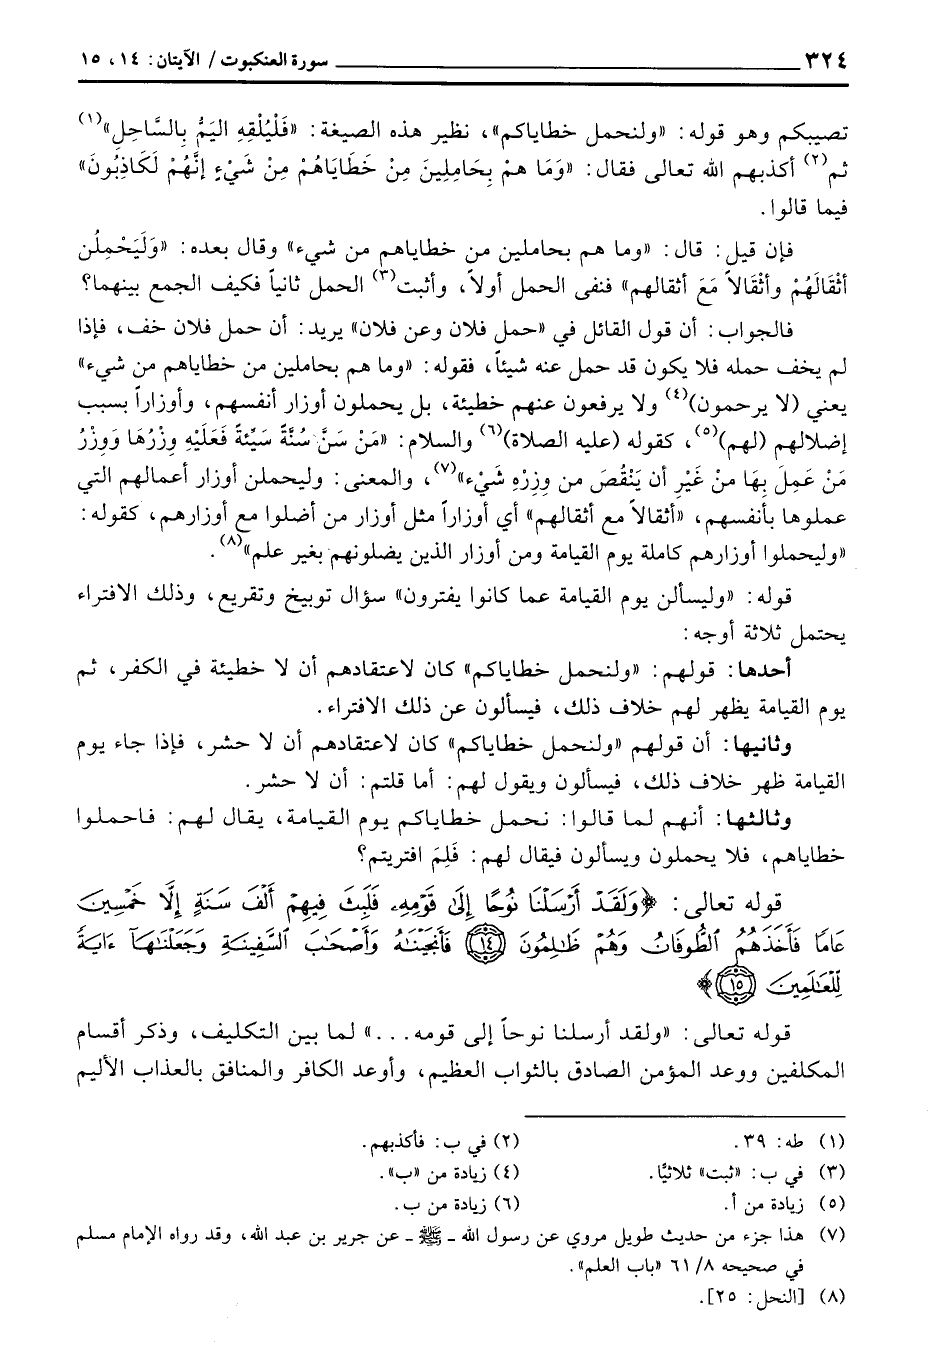 ٣٢٤ سورة العنكبوت / الآيتان: ١٤، ١٥
تصيبكم وهو قوله: «ولنحمل خطاياكم»، نظير هذه الصيغة: «فَلْيُلْقِهِ اليَمُّ بِالسَّاحِلِ»(١)
ثم(٢) أكذبهم الله تعالى فقال: «وَمَا هم بِحَامِلِينَ مِنْ خَطَايَاهُمْ مِنْ شَيْءٍ إِنَّهُمْ لَكَاذِبُونَ»
فيما قالوا.
فإن قيل: قال: «وما هم بحاملين من خطاياهم من شيء» وقال بعده: «وَلَيَحْمِلُن
أثْقَالَهُمْ وأثْقَالاً مَعَ أثقالهم» فنفى الحمل أولاً، وأثبت(٣) الحمل ثانياً فكيف الجمع بينهما؟
فالجواب: أن قول القائل في «حمل فلان وعن فلان» يريد: أن حمل فلان خف، فإذا
لم يخف حمله فلا يكون قد حمل عنه شيئاً، فقوله: «وما هم بحاملين من خطاياهم من شيء»
يعني (لا يرحمون)(٤) ولا يرفعون عنهم خطيئة، بل يحملون أوزار أنفسهم، وأوزاراً بسبب
إضلالهم (لهم)(٥)، كقوله (عليه الصلاة)(٦) والسلام: «مَنْ سَنَّ سُنَّةً سَيِّئَةً فَعَلَيْهِ وِزْرُهَا وَوِزْرُ
مَنْ عَمِلَ بِهَا منْ غَيْرِ أن يَنْقُصَ من وِزِرْهِ شَيْء»(٧)، والمعنى: وليحملن أوزار أعمالهم التي
عملوها بأنفسهم، «أثقالاً مع أثقالهم» أي أوزاراً مثل أوزار من أضلوا مع أوزارهم، كقوله:
«وليحملوا أوزارهم كاملة يوم القيامة ومن أوزار الذين يضلونهم بغير علم»(٨).
قوله: «وليسألن يوم القيامة عما كانوا يفترون» سؤال توبيخ وتقريع، وذلك الافتراء
يحتمل ثلاثة أوجه:
أحدها: قولهم: «ولنحمل خطاياكم» كان لاعتقادهم أن لا خطيئة في الكفر، ثم
يوم القيامة يظهر لهم خلاف ذلك، فيسألون عن ذلك الافتراء.
وثانيها: أن قولهم «ولنحمل خطاياكم» كان لاعتقادهم أن لا حشر، فإذا جاء يوم
القيامة ظهر خلاف ذلك، فيسألون ويقول لهم: أما قلتم: أن لا حشر.
وثالثها: أنهم لما قالوا: نحمل خطاياكم يوم القيامة، يقال لهم: فاحملوا
خطاياهم، فلا يحملون ويسألون فيقال لهم: فَلِمَ افتريتم؟
قوله تعالى: ﴿وَلَقَدْ أَرْسَلْنَا نُوحًا إِلَىٰ قَوْمِهِۦ فَلَبِثَ فِيهِمْ أَلْفَ سَنَةٍ إِلَّا خَمْسِينَ
عَامًا فَأَخَذَهُمُ ٱلطُّوفَانُ وَهُمْ ظَٰلِمُونَ (١٤) فَأَنجَيْنَٰهُ وَأَصْحَٰبَ ٱلسَّفِينَةِ وَجَعَلْنَٰهَآ ءَايَةً
لِّلْعَٰلَمِينَ (١٥)﴾
قوله تعالى: «ولقد أرسلنا نوحاً إلى قومه...» لما بين التكليف، وذكر أقسام
المكلفين ووعد المؤمن الصادق بالثواب العظيم، وأوعد الكافر والمنافق بالعذاب الأليم
(١) طه: ٣٩. (٢) في ب: فأكذبهم.
(٣) في ب: «ثبت» ثلاثيًّا. (٤) زيادة من «ب».
(٥) زيادة من أ. (٦) زيادة من ب.
(٧) هذا جزء من حديث طويل مروي عن رسول الله ـ ﷺ ـ عن جرير بن عبد الله، وقد رواه الإمام مسلم
في صحيحه ٨/ ٦١ «باب العلم».
(٨) [النحل: ٢٥].